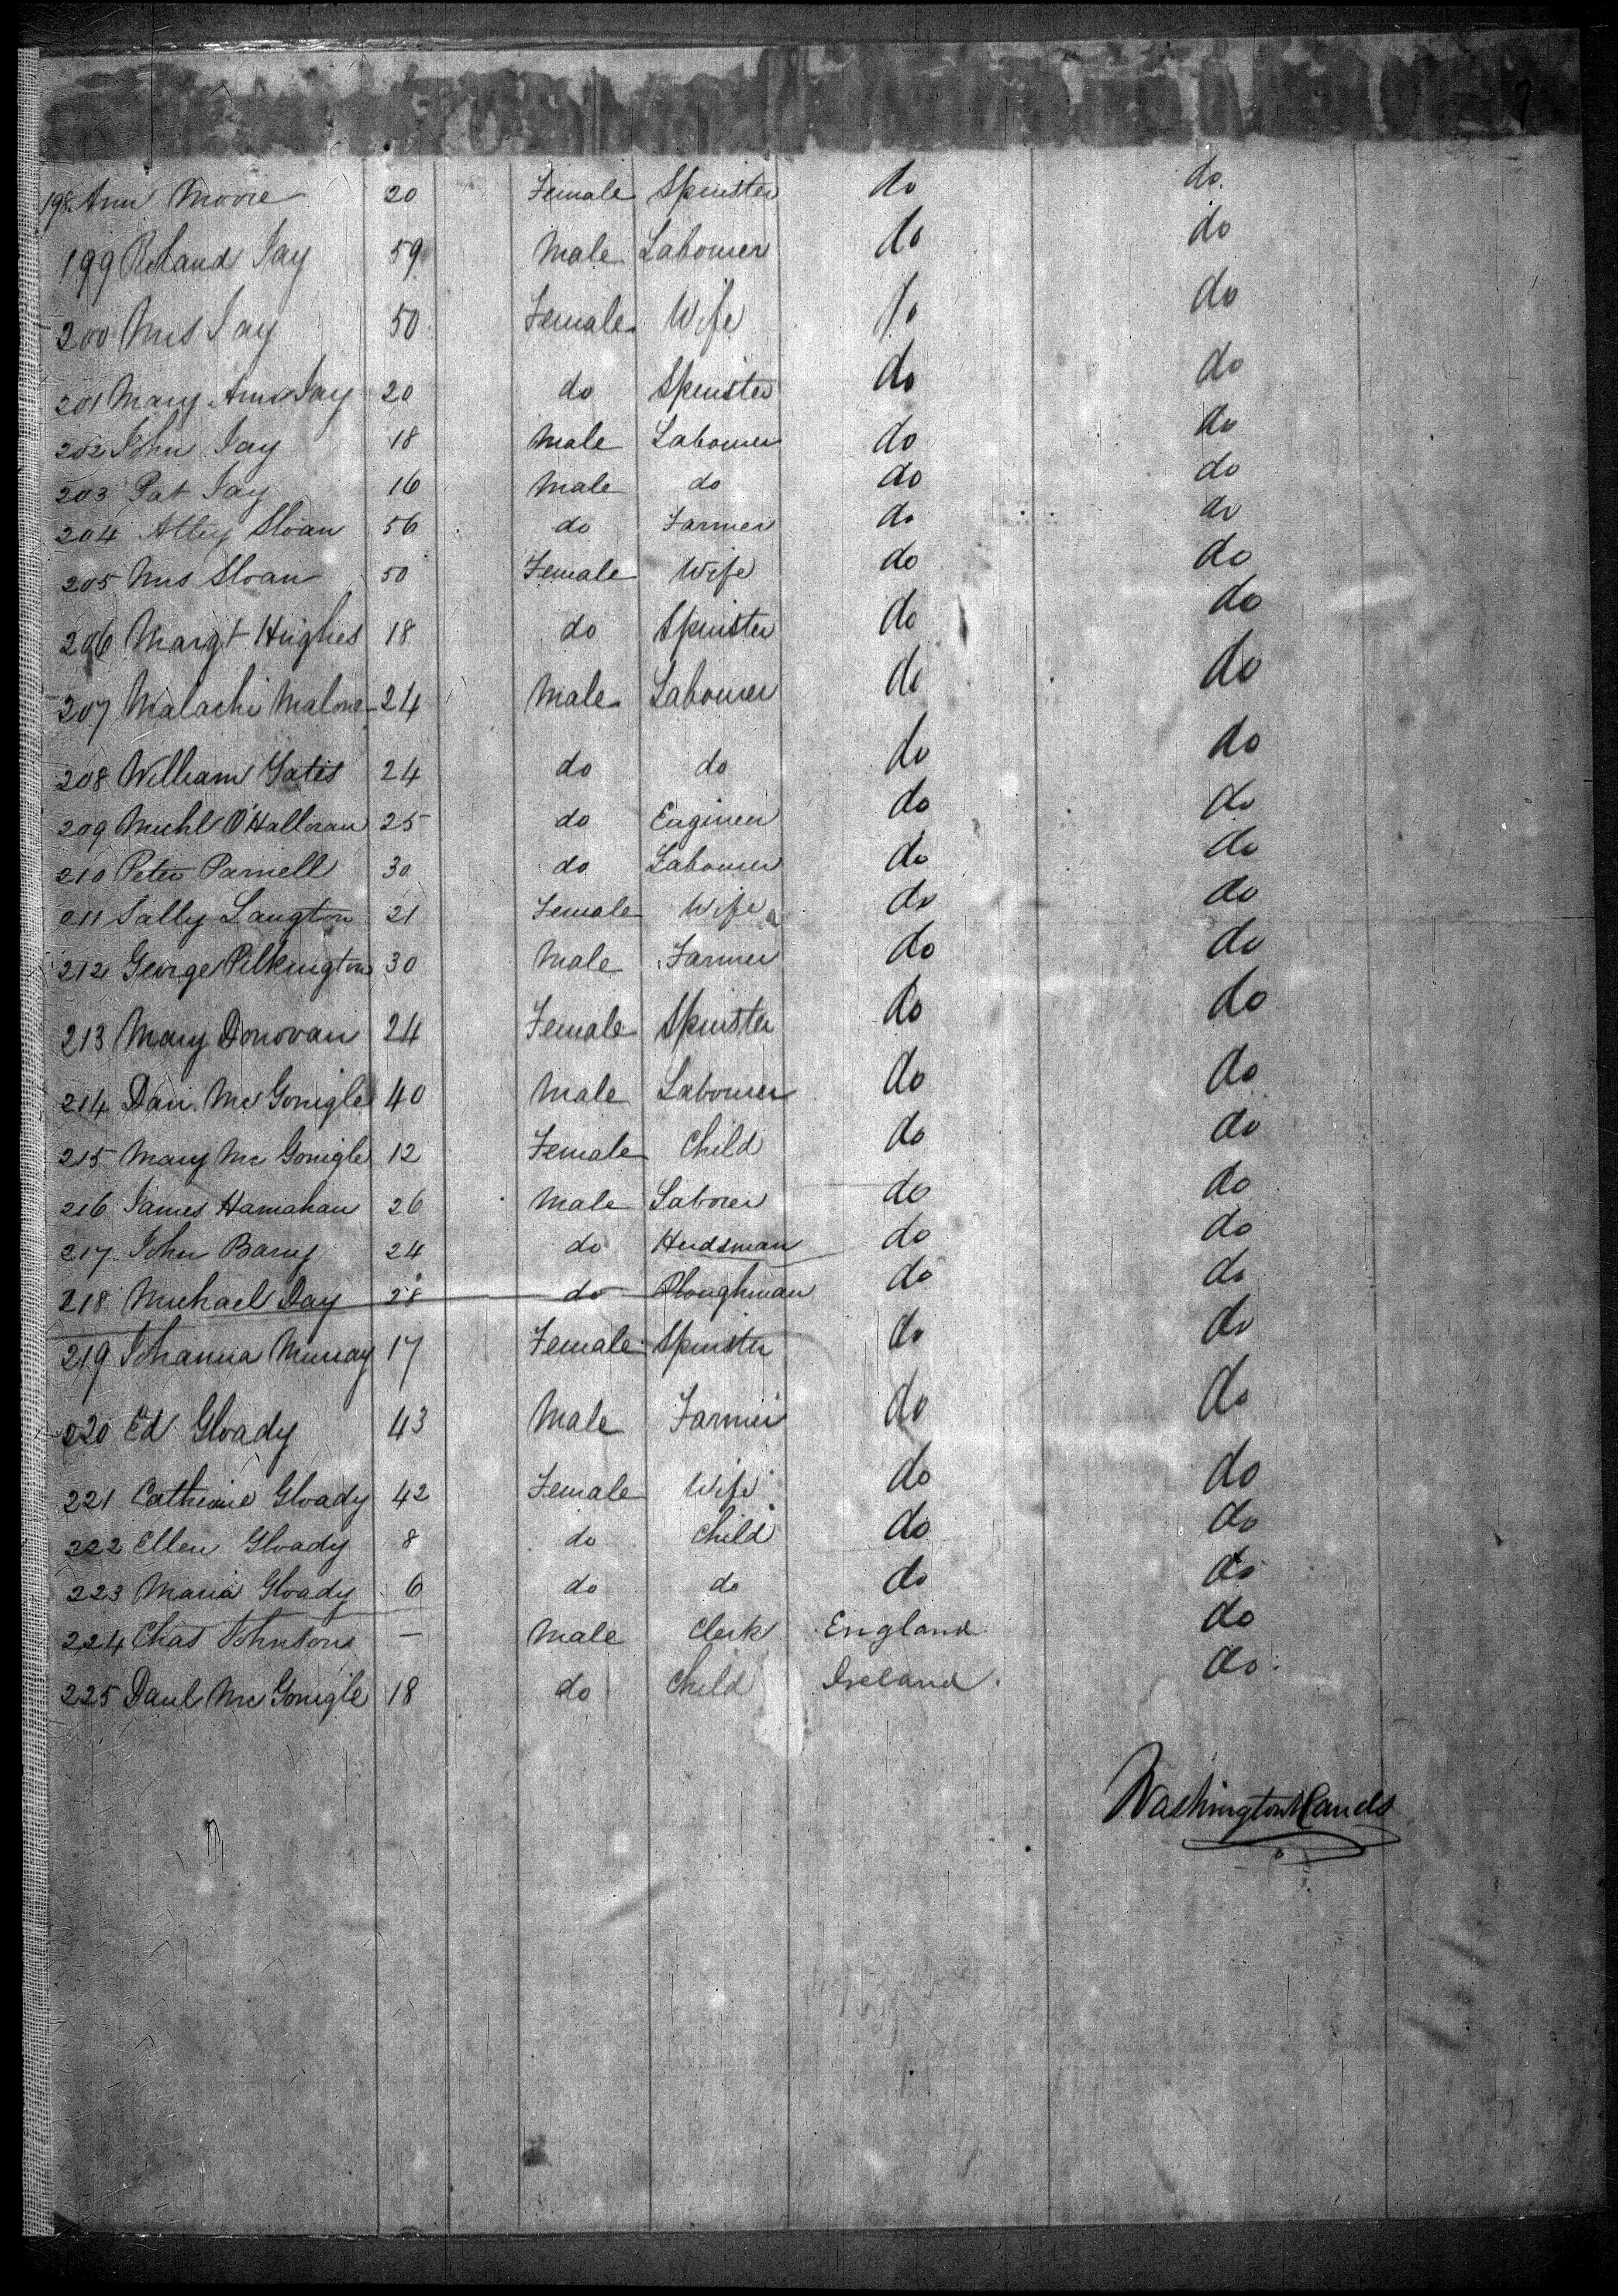 7
198 Ann Moore 20 Female Spinster do do
199 Roland Jay 59 Male Labourer do do
200 Mrs Jay 50 Female Wife do do
201 Mary Ann Jay 20 do Spinster do do
202 John Jay 18 Male Labourer do do
203 Pat Jay 16 Male do do do
204 Alley Sloan 56 do Farmer do do
205 Mrs Sloan 50 Female Wife do do
206 Margt Hughes 18 do Spinster do do
207 Malachi Malone 24 Male Labourer do do
208 William Yates 24 do do do do
209 Michl O'Halloran 25 do Engineer do do
210 Peter Parnell 30 do Labourer do do
211 Sally Langton 21 Female Wife do do
212 George Pilkington 30 Male Farmer do do
213 Mary Donovan 24 Female Spinster do do
214 Dan. McGonigle 40 Male Labourer do do
215 Mary McGonigle 12 Female Child do do
216 James Hanrahan 26 Male Laborer do do
217 John Barry 24 do Herdsman do do
218 Michael Day 28 do Ploughman do do
219 Johanna Murray 17 Female Spinster do do
220 Ed Gloady 43 Male Farmer do do
221 Catherine Gloady 42 Female Wife do do
222 Ellen Gloady 8 do Child do do
223 Maria Gloady 6 do do do do
224 Chas Johnson — Male Clerk England do
225 Danl McGonigle 18 do Child Ireland do
Washington Hands